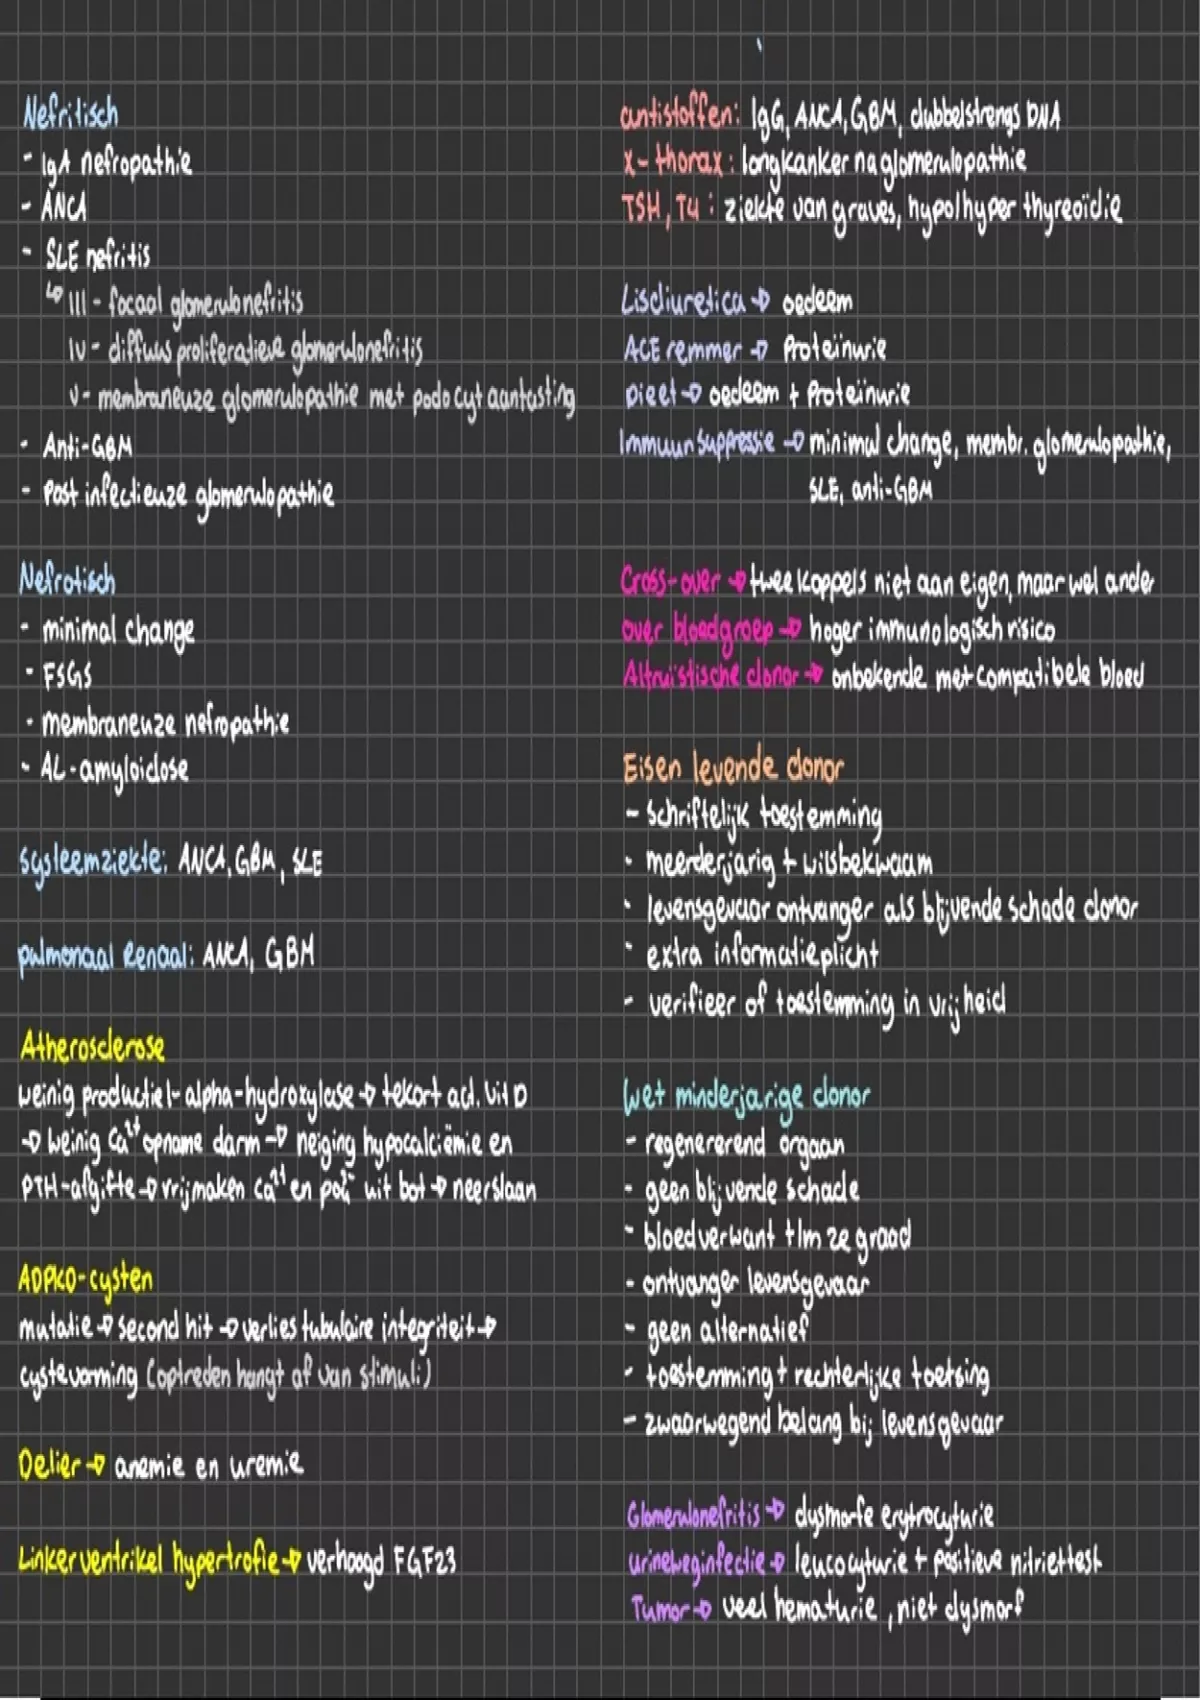 Nefritisch
- IgA nefropathie
- ANCA
- SLE nefritis
↳ III - focaal glomerulonefritis
IV - diffuus proliferatieve glomerulonefritis
V - membraneuze glomerulopathie met podocytaantasting
- Anti-GBM
- Post infectieuze glomerulopathie
Nefrotisch
- minimal change
- FSGS
- membraneuze nefropathie
- AL-amyloidose
Systeemziekte: ANCA, GBM, SLE
pulmonaal Renaal: ANCA, GBM
Atherosclerose
weinig productie 1-alpha-hydroxylase → tekort act. vit D
→ weinig Ca²⁺ opname darm → neiging hypocalciëmie en
PTH-afgifte → vrijmaken Ca²⁺ en PO₄²⁻ uit bot → neerslaan
ADPKD-cysten
mutatie → second hit → verlies tubulaire integriteit →
cystevorming (optreden hangt af van stimuli)
Delier → anemie en uremie
Linker ventrikel hypertrofie → verhoogd FGF23
antistoffen: IgG, ANCA, GBM, dubbelstrengs DNA
X-thorax: longkanker na glomerulopathie
TSH, T4: ziekte van graves, hypo/hyper thyreoïdie
Lisdiuretica → oedeem
ACE remmer → Proteïnurie
Dieet → oedeem + Proteïnurie
Immuunsuppressie → minimal change, membr. glomerulopathie,
SLE, anti-GBM
Cross-over → twee koppels niet aan eigen, maar wel ander
over bloedgroep → hoger immunologisch risico
Altruïstische donor → onbekende met compatibele bloed
Eisen levende donor
- Schriftelijk toestemming
- meerderjarig + wilsbekwaam
- levensgevaar ontvanger als blijvende schade donor
- extra informatieplicht
- verifieer of toestemming in vrijheid
Wet minderjarige donor
- regenererend orgaan
- geen blijvende schade
- bloedverwant t/m 2e graad
- ontvanger levensgevaar
- geen alternatief
- toestemming + rechterlijke toetsing
- zwaarwegend belang bij levensgevaar
Glomerulonefritis → dysmorfe erytrocyturie
urineweginfectie → leucocyturie + positieve nitriettest
Tumor → veel hematurie, niet dysmorf